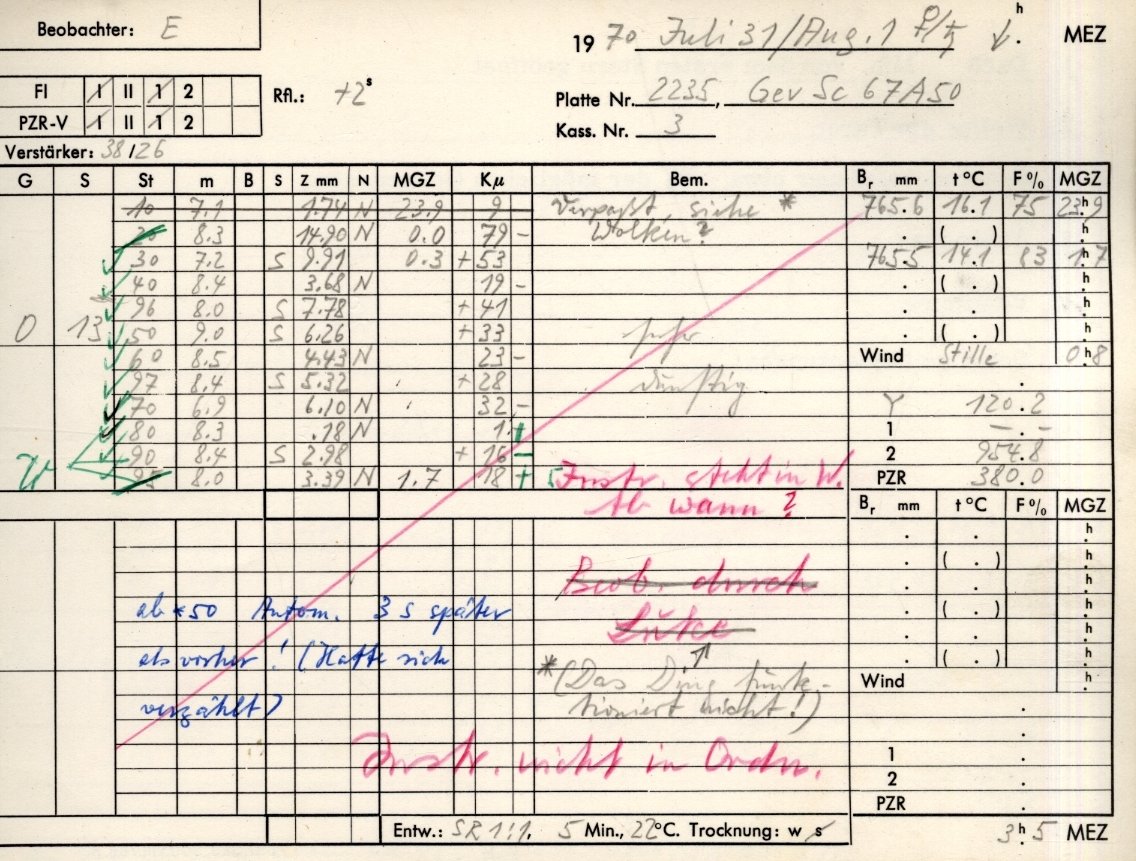 Beobachter: E
1970 Juli 31/Aug. 1 ♀/♄ h MEZ
FI I II 1 2
Rfl.: +2 s
Platte Nr. 2235, Gev Sc 67A50
PZR-V I II 1 2
Kass. Nr. 3
Verstärker: 38/26
G S St m B S Z mm N MGZ Kμ Bem. Br mm t °C F % MGZ
10 7.1 1.74 N 23.9 9 Verpaßt, siehe * 765.6 16.1 75 23 h 9
20 8.3 14.90 N 0.0 79 - Wolken? ( . ) h
30 7.2 S 9.91 0.3 + 53 765.5 14.1 83 1 h 7
40 8.4 3.68 N 19 - ( . ) h
96 8.0 S 7.78 + 41 h
0 13 50 9.0 S 6.26 + 33 sehr ( . ) h
60 8.5 4.43 N 23 - Wind Stille 0 h 8
97 8.4 S 5.32 + 28 dunstig
70 6.9 6.10 N 32 - Y 120.2
80 8.3 .18 N 1. + 1 -.-
W 90 8.4 S 2.98 + 16 - 2 954.8
95 8.0 3.39 N 1.7 18 + Instr. steht in W. PZR 380.0
Ab wann? Br mm t °C F % MGZ
h
( . ) h
Beob. durch h
ab *50 Autom. 3 s später ( . ) h
Lücke h
als vorher! (Hatte sich ( . ) h
*(Das Ding funk- Wind h
verzählt) tioniert nicht!)
Instr. nicht in Ordn. 1
2
PZR
Entw.: SR 1:1, 5 Min., 22°C. Trocknung: w s 3 h 5 MEZ